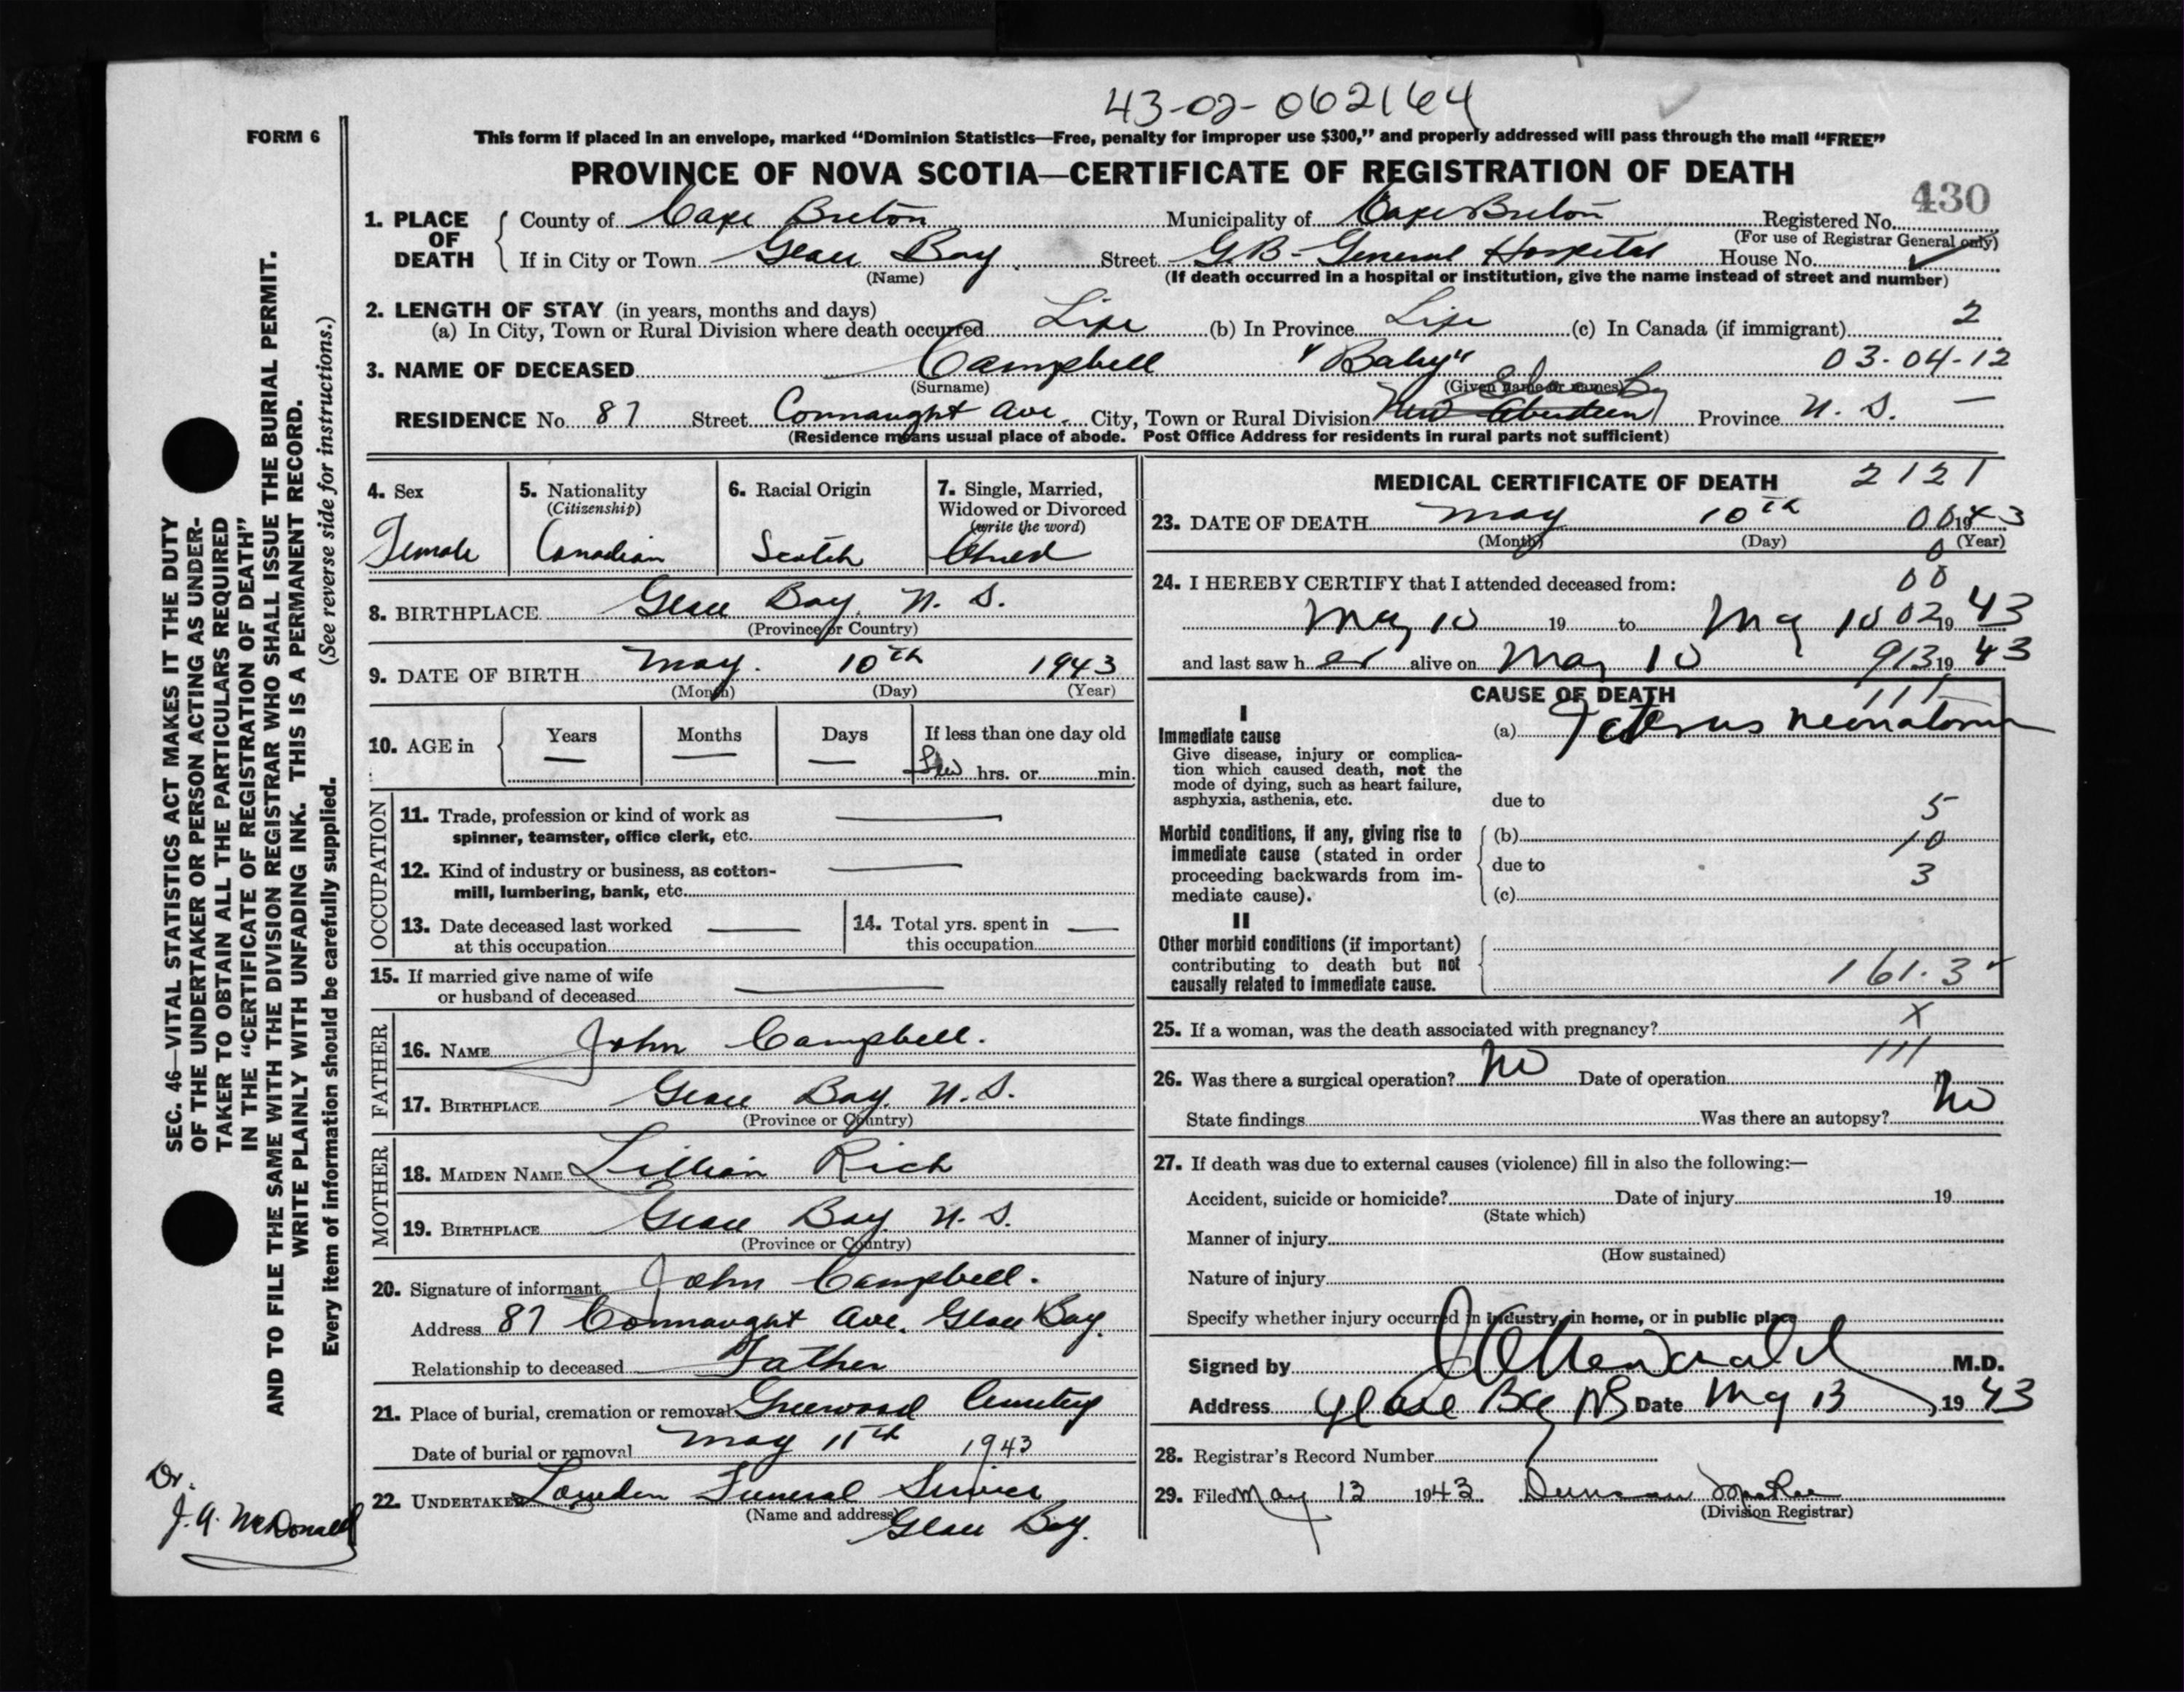 43-02-062164
FORM 6
This form if placed in an envelope, marked “Dominion Statistics—Free, penalty for improper use $300,” and properly addressed will pass through the mail “FREE”
PROVINCE OF NOVA SCOTIA—CERTIFICATE OF REGISTRATION OF DEATH
430
1. PLACE OF DEATH
County of Cape Breton Municipality of Cape Breton Registered No.
(For use of Registrar General only)
If in City or Town Glace Bay Street G.B- General Hospital House No.
(Name) (If death occurred in a hospital or institution, give the name instead of street and number)
2. LENGTH OF STAY (in years, months and days) 2
(a) In City, Town or Rural Division where death occurred Life (b) In Province Life (c) In Canada (if immigrant)
3. NAME OF DECEASED Campbell "Baby" 03-04-12
(Surname) (Given name or names)
RESIDENCE No. 87 Street Connaught Ave. City, Town or Rural Division New Aberdeen Province N. S. —
(Residence means usual place of abode. Post Office Address for residents in rural parts not sufficient)
4. Sex
Female
5. Nationality
(Citizenship)
Canadian
6. Racial Origin
Scotch
7. Single, Married,
Widowed or Divorced
(write the word)
8. BIRTHPLACE Glace Bay, N. S.
(Province or Country)
9. DATE OF BIRTH May. 10th 1943
(Month) (Day) (Year)
10. AGE in Years — Months — Days — If less than one day old
Few hrs. or min.
OCCUPATION
11. Trade, profession or kind of work as
spinner, teamster, office clerk, etc.
12. Kind of industry or business, as cotton-
mill, lumbering, bank, etc.
13. Date deceased last worked
at this occupation
14. Total yrs. spent in
this occupation
15. If married give name of wife
or husband of deceased
FATHER
16. NAME John Campbell.
17. BIRTHPLACE Glace Bay, N.S.
(Province or Country)
MOTHER
18. MAIDEN NAME Lillian Rich
19. BIRTHPLACE Glace Bay N.S.
(Province or Country)
20. Signature of informant John Campbell.
Address 87 Connaught Ave. Glace Bay.
Relationship to deceased Father
21. Place of burial, cremation or removal Greenwood Cemetery
Date of burial or removal May 11th 1943
22. UNDERTAKER Funeral Service
(Name and address)
Glace Bay.
MEDICAL CERTIFICATE OF DEATH 2121
23. DATE OF DEATH May 10th 00 1943
(Month) (Day) (Year)
0
24. I HEREBY CERTIFY that I attended deceased from: 00
May 10 19 to May 10 02 19 43
and last saw her alive on May 10 913 19 43
CAUSE OF DEATH 111
I
Immediate cause
Give disease, injury or complica-
tion which caused death, not the
mode of dying, such as heart failure,
asphyxia, asthenia, etc.
(a) Icterus neonatorum
due to 5
Morbid conditions, if any, giving rise to
immediate cause (stated in order
proceeding backwards from im-
mediate cause).
(b) 10
due to 3
(c)
II
Other morbid conditions (if important)
contributing to death but not
causally related to immediate cause.
161.3
25. If a woman, was the death associated with pregnancy? X
111
26. Was there a surgical operation? No Date of operation
State findings Was there an autopsy? No
27. If death was due to external causes (violence) fill in also the following:—
Accident, suicide or homicide? Date of injury 19
(State which)
Manner of injury
(How sustained)
Nature of injury
Specify whether injury occurred in industry, in home, or in public place
Signed by M.D.
Address Glace Bay NS Date May 13, 1943
28. Registrar's Record Number
29. Filed May 12 1943 Duncan MacRae
(Division Registrar)
SEC. 46—VITAL STATISTICS ACT MAKES IT THE DUTY
OF THE UNDERTAKER OR PERSON ACTING AS UNDER-
TAKER TO OBTAIN ALL THE PARTICULARS REQUIRED
IN THE “CERTIFICATE OF REGISTRATION OF DEATH”
AND TO FILE THE SAME WITH THE DIVISION REGISTRAR WHO SHALL ISSUE THE BURIAL PERMIT.
WRITE PLAINLY WITH UNFADING INK. THIS IS A PERMANENT RECORD.
Every item of information should be carefully supplied. (See reverse side for instructions.)
Dr.
J. A. McDonald